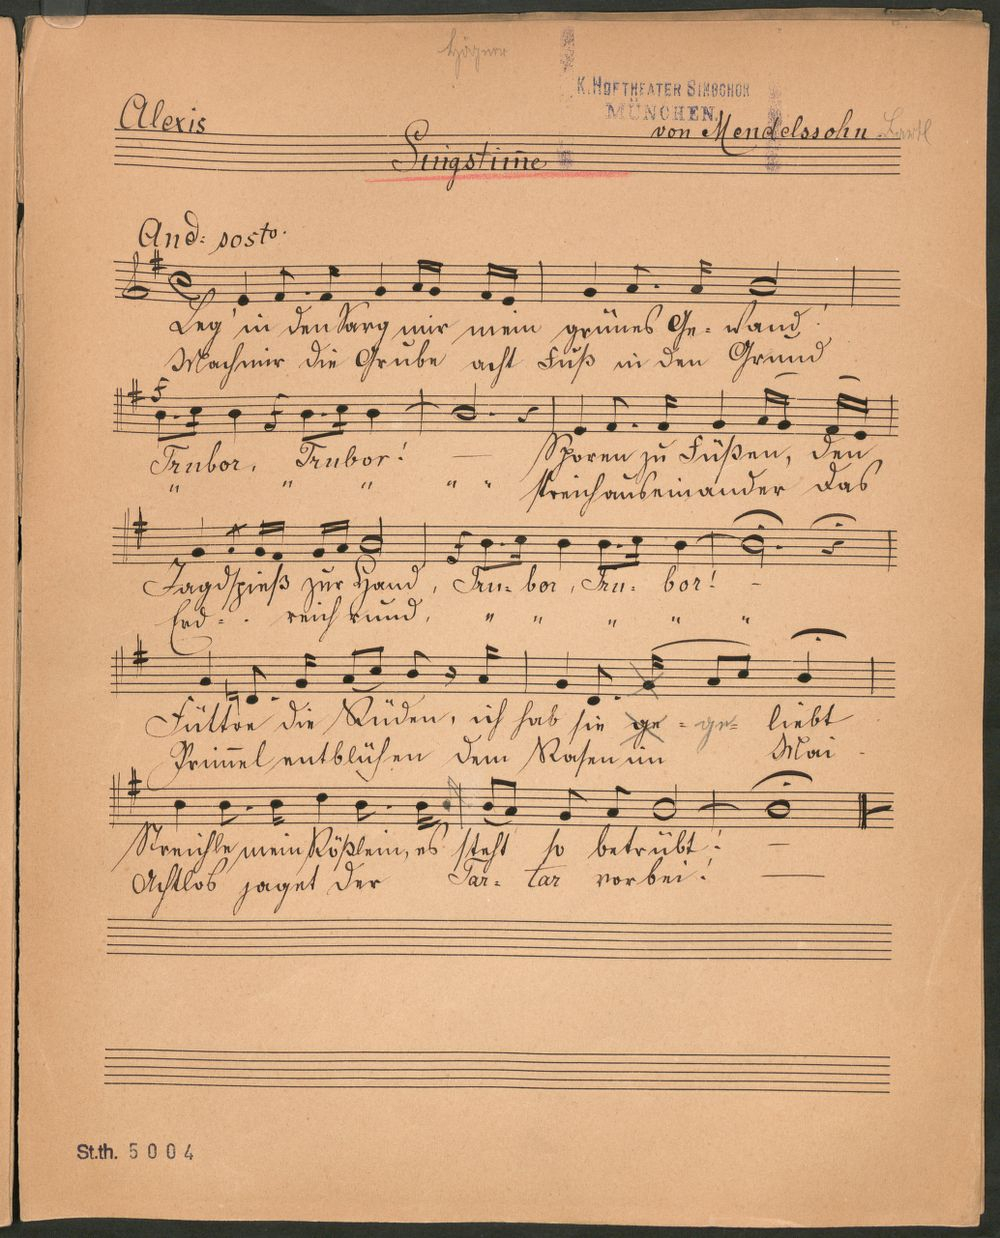 K. HOFTHEATER SINGCHOR
MÜNCHEN.
Alexis
von Mendelssohn.
Singstim̄e
And: sosto.
Leg' in den Sarg mir mein grünes Ge- wand!
Mach mir die Grube acht Fuß in den Grund
Trubor, Trubor! — Sporen zu Füßen, den
" " " " " streich auseinander das
Jagdspieß zur Hand, Tru- bor, Tru- bor! -
Erd- - reich rund, " " " " "
Füttre die Rüden, ich hab sie ge - ge- liebt
Prim̄el entblühen dem Rasen im Mai -
Streichle mein Rößlein, es steht so betrübt! —
Achtlos jaget der Tar- tar vorbei! —
St.th. 5004